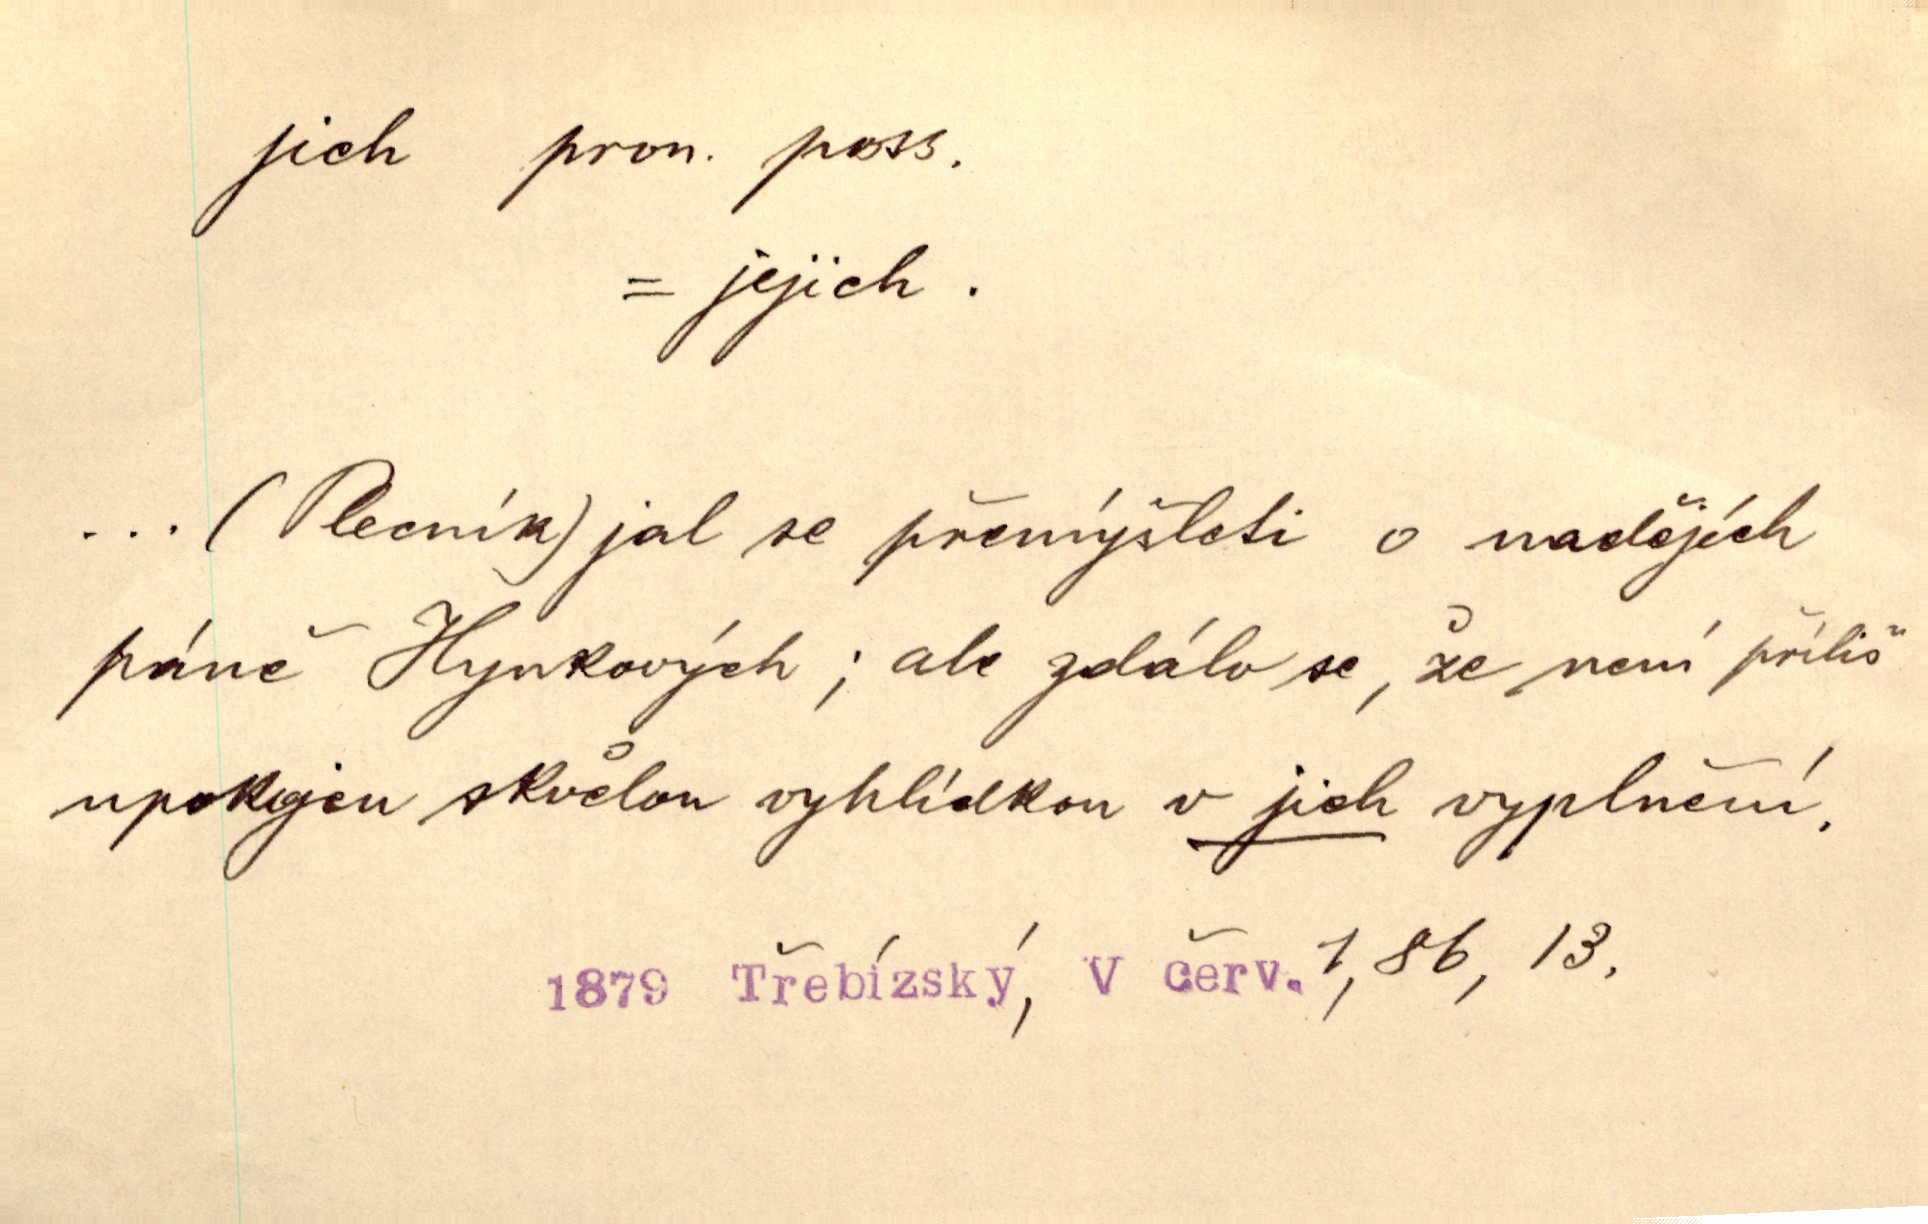 jich pron. poss.
= jejich.
... (Plecník) jal se přemýšleti o nadějích
páně Hynkových; ale zdálo se, že není příliš
upokojen skvělou vyhlídkou v jich vyplnění.
1879 Třebízský, V červ. 1, 86, 13.